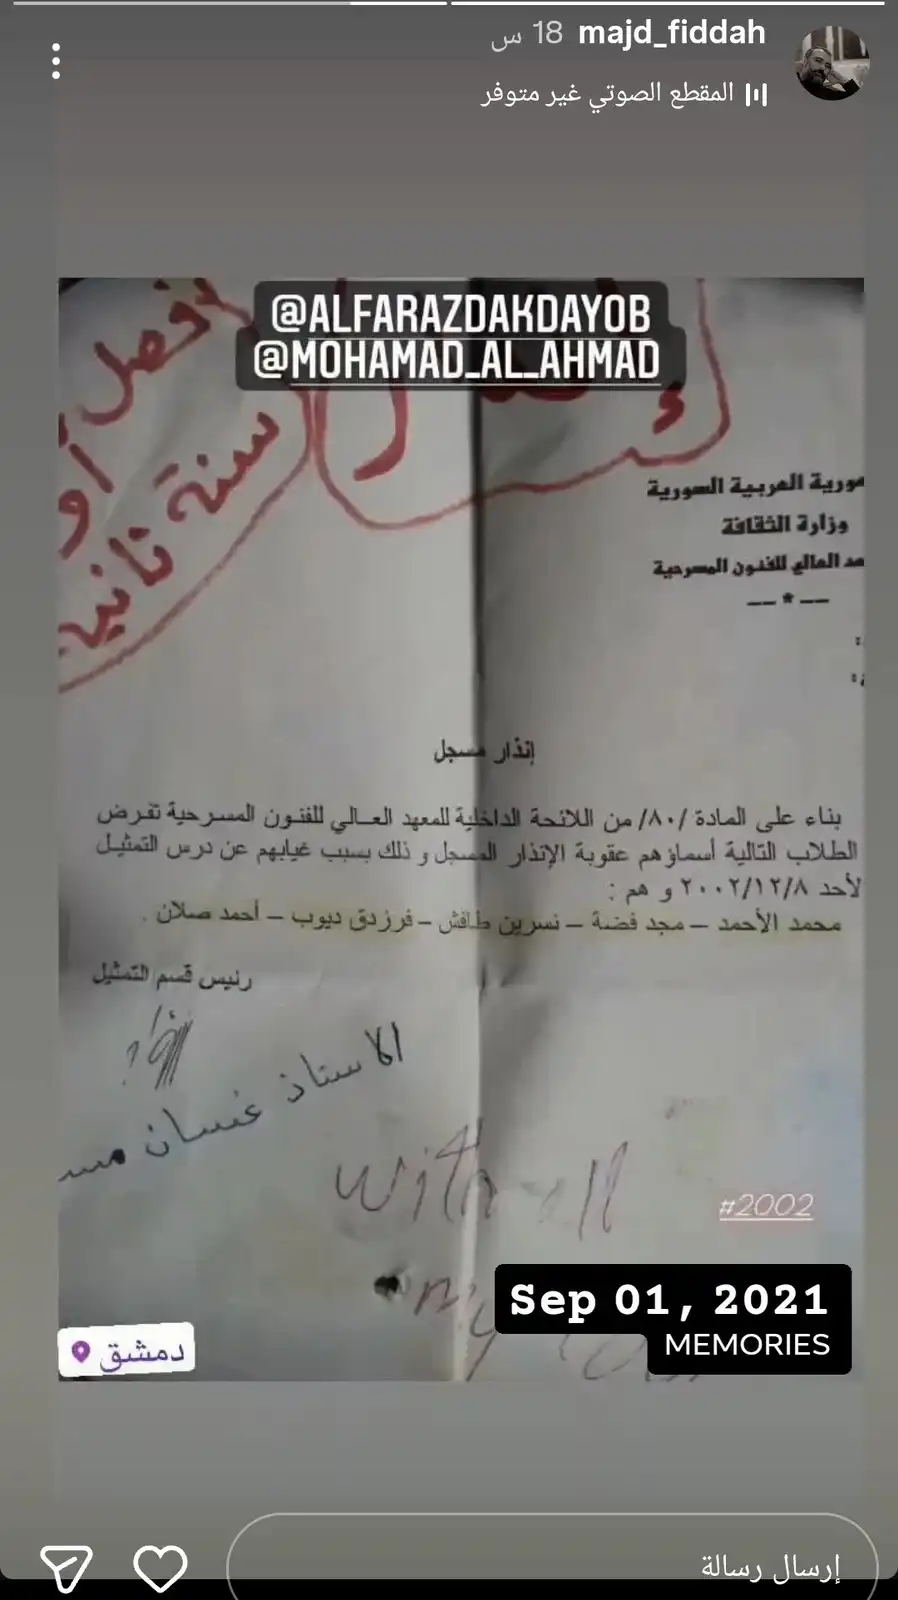 majd_fiddah 18 س
المقطع الصوتي غير متوفر
@ALFARAZDAKDAYOB
@MOHAMAD_AL_AHMAD
سنة ثانية
العربية السورية
وزارة الثقافة
العالي للفنون المسرحية
-- * --
إنذار مسجل
بناء على المادة /٨٠/ من اللائحة الداخلية للمعهد العـالي للفنـون المسـرحية تفـرض
الطلاب التالية أسماؤهم عقوبة الإنذار المسجل و ذلك بسبب غيابهم عن درس التمثيـل
لأحد ٢٠٠٢/١٢/٨ و هم :
محمد الأحمد – مجد فضة – نسرين طافش – فرزدق ديوب – أحمد صلان .
رئيس قسم التمثيل
الاستاذ غسان
with all
my
#2002
Sep 01, 2021
MEMORIES
دمشق
إرسال رسالة